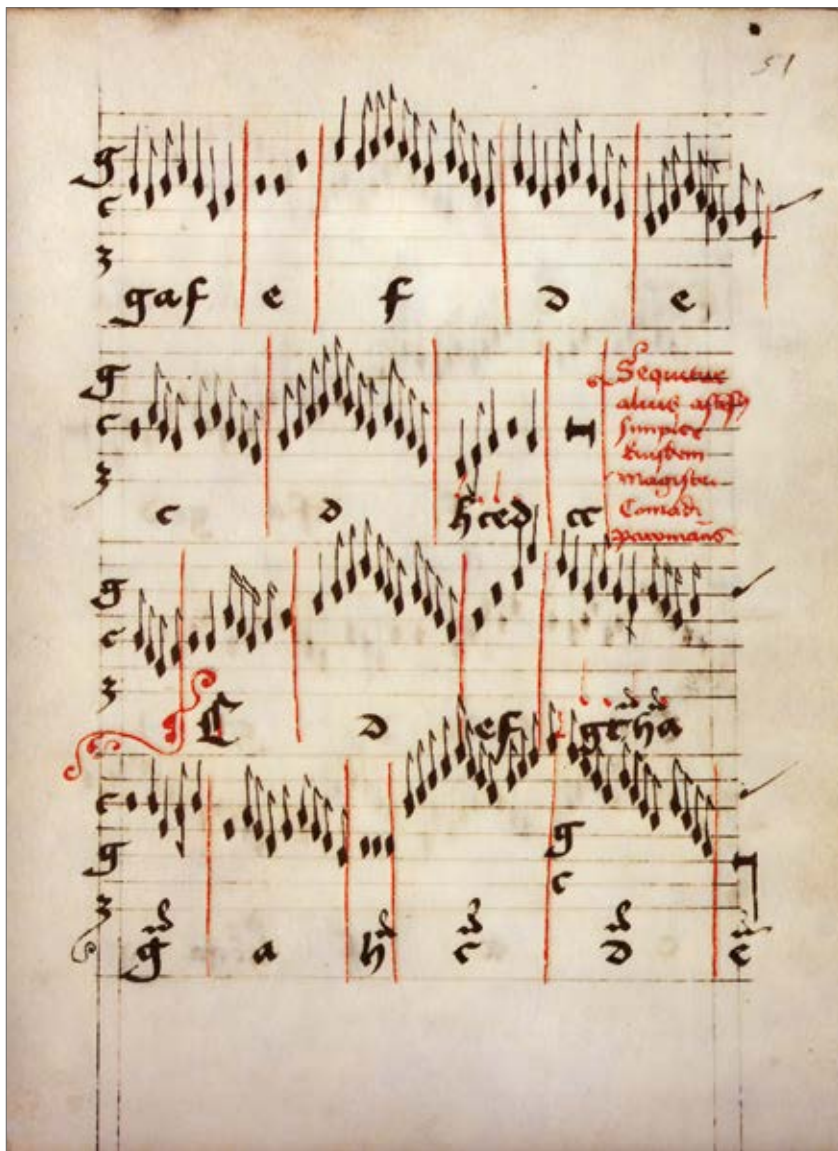 51
g
c
z
gaf e f d e
g
c
z
Sequitur
alius ascēsꝯ
simplex
Eiusdem
magistri
Conradi
paūmans
c d hced cc
g
c
z
C d ef gcha
c
g
z
g
c
g a h c d c